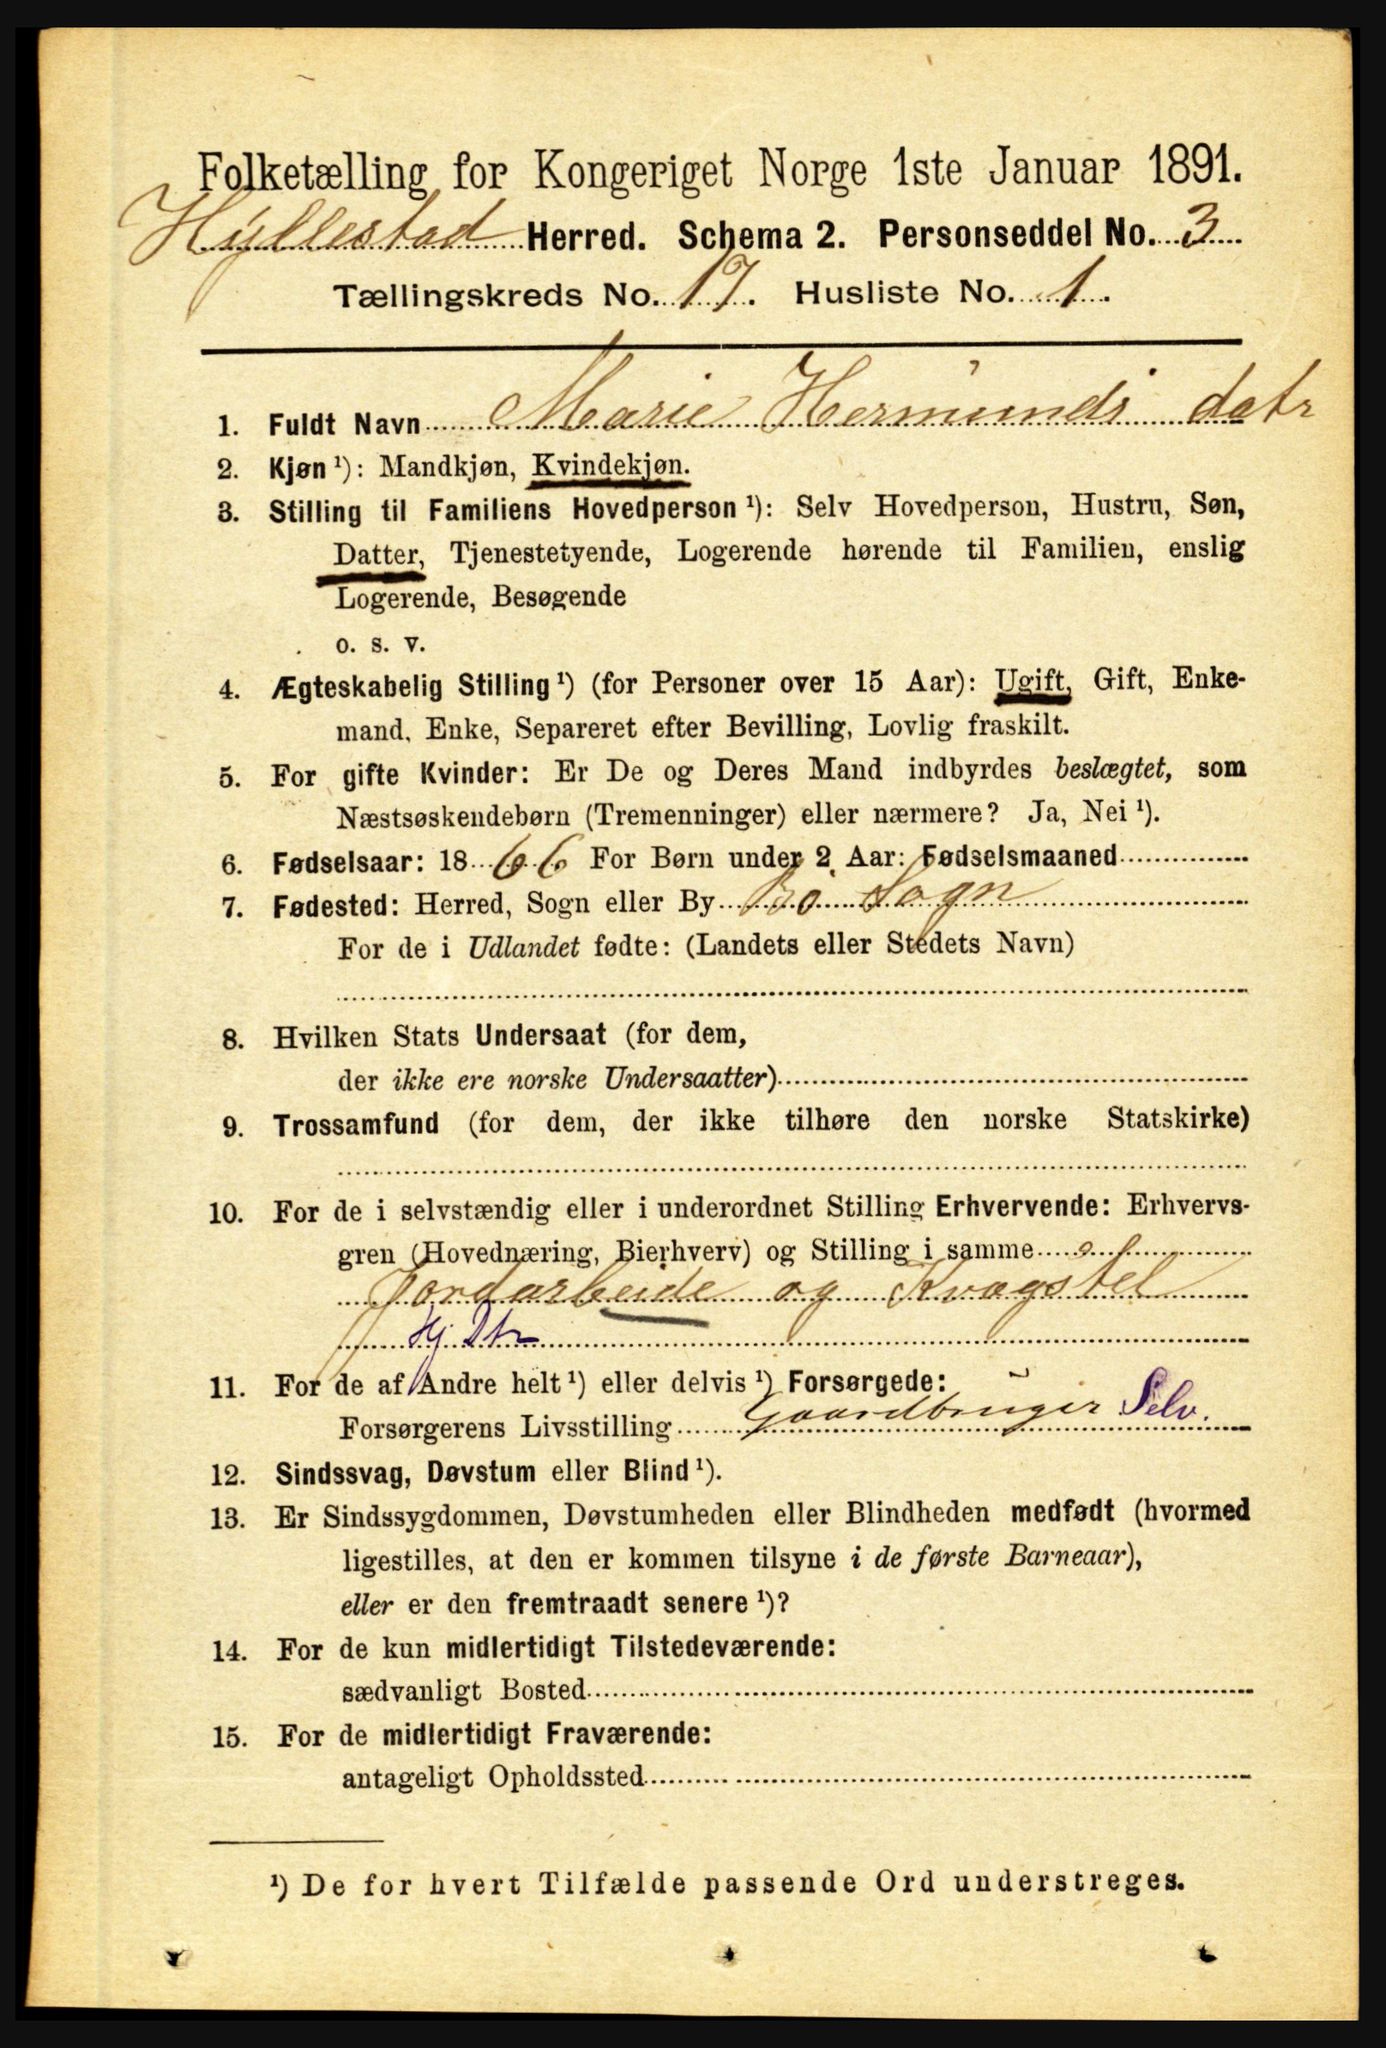 Folketælling for Kongeriget Norge 1ste Januar 1891.
Hyllestad Herred. Schema 2. Personseddel No. 3
Tællingskreds No. 17. Husliste No. 1.
1. Fuldt Navn Marie Hermunds datr
2. Kjøn ¹): Mandkjøn, Kvindekjøn.
3. Stilling til Familiens Hovedperson ¹): Selv Hovedperson, Hustru, Søn,
Datter, Tjenestetyende, Logerende hørende til Familien, enslig
Logerende, Besøgende
o. s. v.
4. Ægteskabelig Stilling ¹) (for Personer over 15 Aar): Ugift, Gift, Enke-
mand, Enke, Separeret efter Bevilling, Lovlig fraskilt.
5. For gifte Kvinder: Er De og Deres Mand indbyrdes beslægtet, som
Næstsøskendebørn (Tremenninger) eller nærmere? Ja, Nei ¹).
6. Fødselsaar: 1866 For Børn under 2 Aar: Fødselsmaaned
7. Fødested: Herred, Sogn eller By Bø Sogn
For de i Udlandet fødte: (Landets eller Stedets Navn)
8. Hvilken Stats Undersaat (for dem,
der ikke ere norske Undersaatter)
9. Trossamfund (for dem, der ikke tilhøre den norske Statskirke)
10. For de i selvstændig eller i underordnet Stilling Erhvervende: Erhvervs-
gren (Hovednæring, Bierhverv) og Stilling i samme
Jordarbeide og Kvægstel
Hj. Dtr
11. For de af Andre helt ¹) eller delvis ¹) Forsørgede:
Forsørgerens Livsstilling Gaardbruger Selv.
12. Sindssvag, Døvstum eller Blind ¹).
13. Er Sindssygdommen, Døvstumheden eller Blindheden medfødt (hvormed
ligestilles, at den er kommen tilsyne i de første Barneaar),
eller er den fremtraadt senere ¹)?
14. For de kun midlertidigt Tilstedeværende:
sædvanligt Bosted
15. For de midlertidigt Fraværende:
antageligt Opholdssted
¹) De for hvert Tilfælde passende Ord understreges.